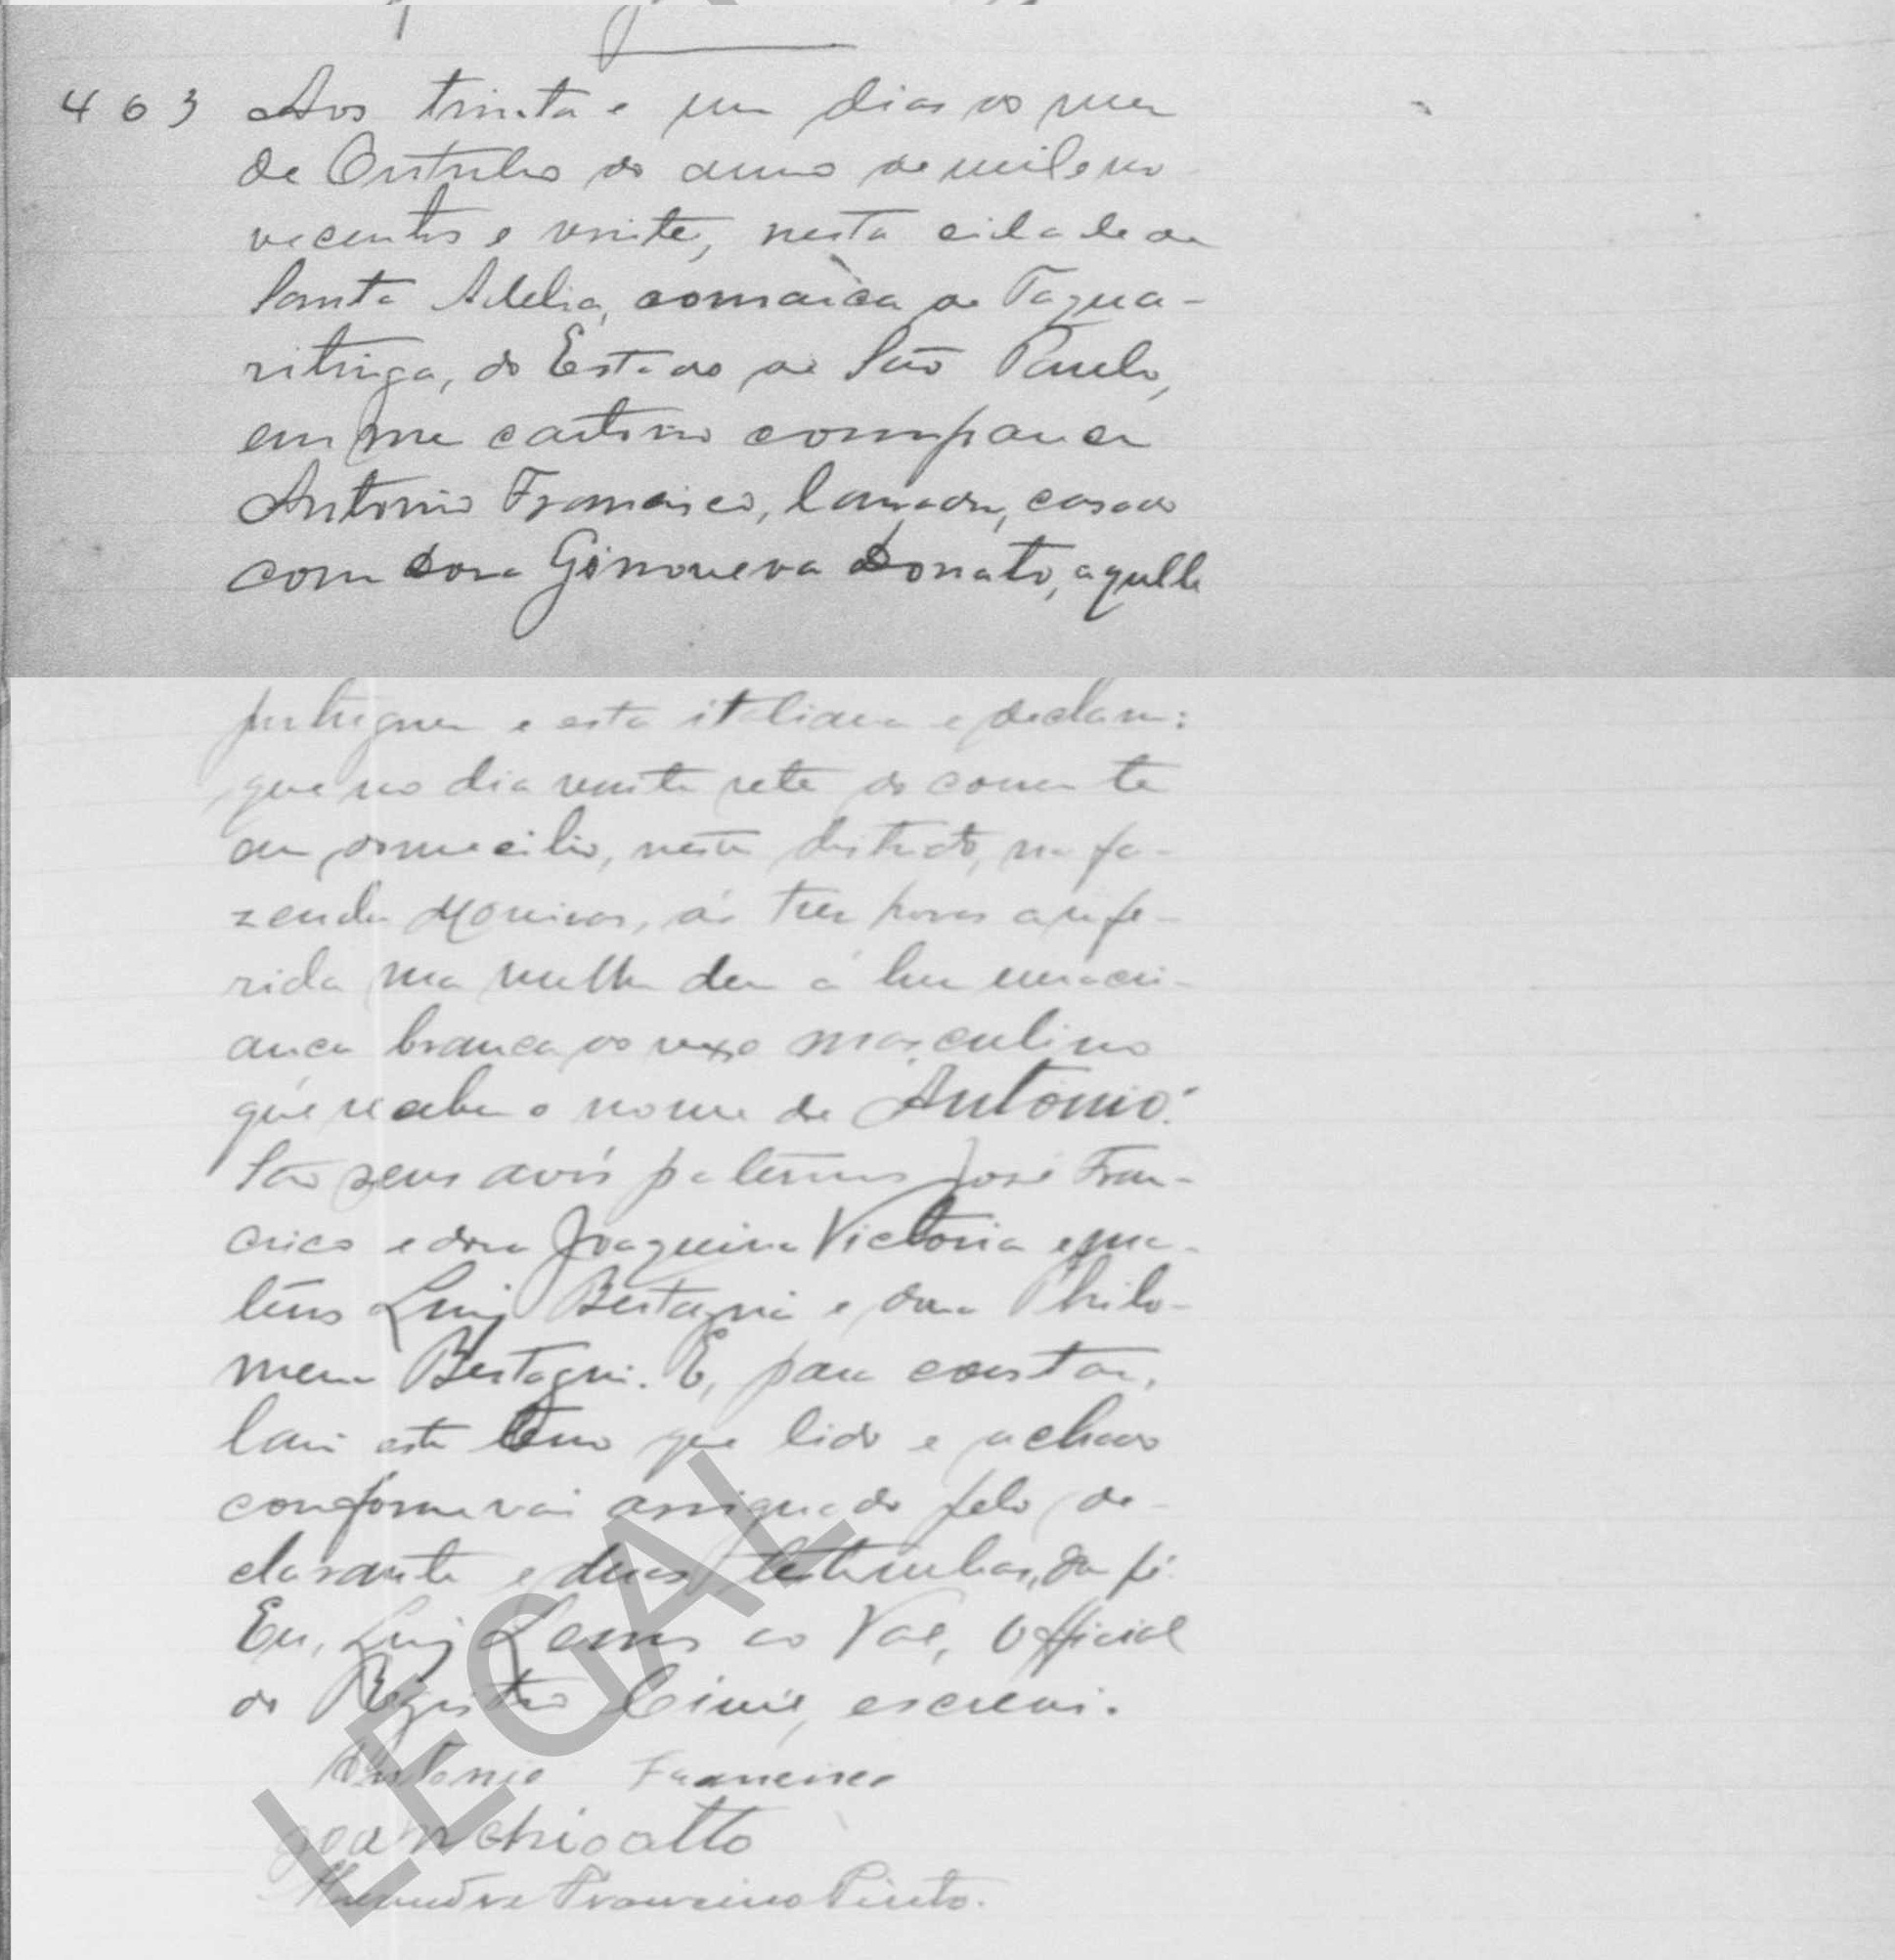 463 Aos trinta e um dias do mez
de Outubro do anno de mil e no
vecentos e vinte, nesta cidade de
Santa Adelia, comarca de Taqua-
ritinga, do Estado de São Paulo,
em meu cartorio compareceu
Antonio Francisco, lavrador, casado
com dona Ginoveva Donato, aquelle
portuguez e esta italiana e declarou:
que no dia vinte sete do corrente
em domicilio, neste districto, na fa-
zenda ás tres horas a refe-
rida sua mulher deu á luz uma cri-
ança branca do sexo masculino
que recebeu o nome de Antonio.
São seus avós paternos José Fran-
cisco e dona Joaquina Victoria e ma-
ternos Luiz Bertagni e dona Philo-
mena Bertagni. E, para constar,
lavrei este termo que lido e achado
conforme vai assignado pelo de-
clarante e duas testemunhas, dou fé.
Eu, Luiz Lemos do Val, Official
do Registro Civil, escrevi.
Antonio Francisco
João Schioatto
Alexandre Francisco Pinto.
LEGAL